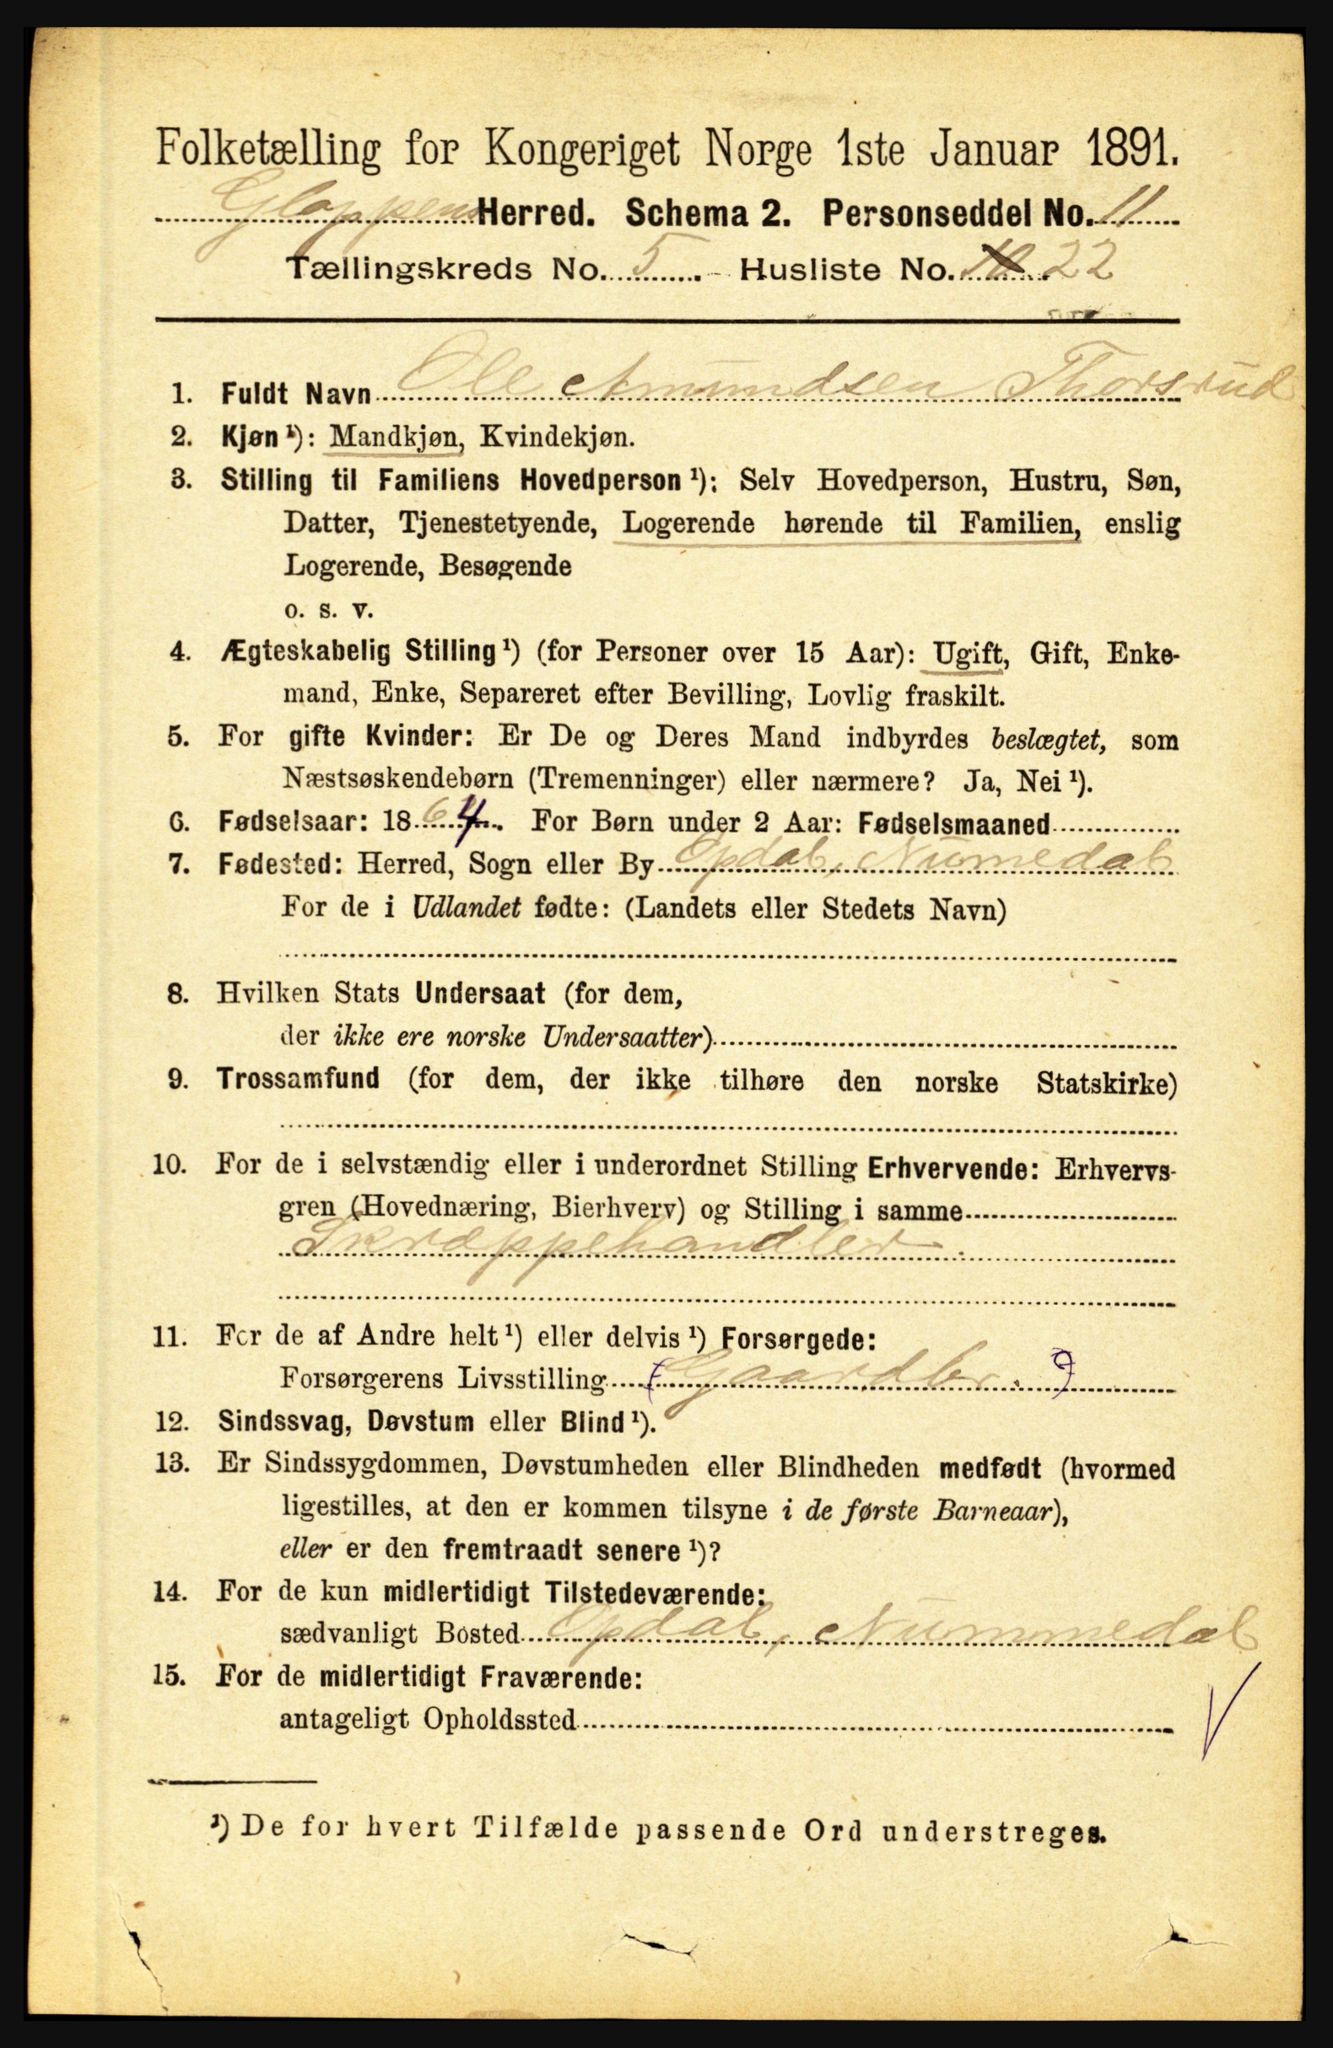 Folketælling for Kongeriget Norge 1ste Januar 1891.
Gloppens Herred. Schema 2. Personseddel No. 11
Tællingskreds No. 5. - Husliste No. 10 22
1. Fuldt Navn Ole Amundsen Thorsrud
2. Kjøn ¹): Mandkjøn, Kvindekjøn.
3. Stilling til Familiens Hovedperson ¹): Selv Hovedperson, Hustru, Søn,
Datter, Tjenestetyende, Logerende hørende til Familien, enslig
Logerende, Besøgende
o. s. v.
4. Ægteskabelig Stilling ¹) (for Personer over 15 Aar): Ugift, Gift, Enke-
mand, Enke, Separeret efter Bevilling, Lovlig fraskilt.
5. For gifte Kvinder: Er De og Deres Mand indbyrdes beslægtet, som
Næstsøskendebørn (Tremenninger) eller nærmere? Ja, Nei ¹).
6. Fødselsaar: 1864. For Børn under 2 Aar: Fødselsmaaned
7. Fødested: Herred, Sogn eller By Opdal, Numedal
For de i Udlandet fødte: (Landets eller Stedets Navn)
8. Hvilken Stats Undersaat (for dem,
der ikke ere norske Undersaatter)
9. Trossamfund (for dem, der ikke tilhøre den norske Statskirke)
10. For de i selvstændig eller i underordnet Stilling Erhvervende: Erhvervs-
gren (Hovednæring, Bierhverv) og Stilling i samme
Skræppehandler.
11. For de af Andre helt ¹) eller delvis ¹) Forsørgede:
Forsørgerens Livsstilling (Gaardbr. ?
12. Sindssvag, Døvstum eller Blind ¹).
13. Er Sindssygdommen, Døvstumheden eller Blindheden medfødt (hvormed
ligestilles, at den er kommen tilsyne i de første Barneaar),
eller er den fremtraadt senere ¹)?
14. For de kun midlertidigt Tilstedeværende:
sædvanligt Bosted Opdal, Nummedal
15. For de midlertidigt Fraværende:
antageligt Opholdssted
¹) De for hvert Tilfælde passende Ord understreges.